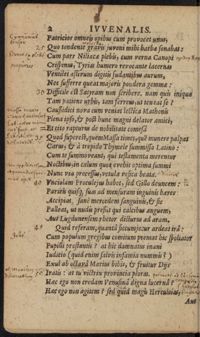 2 IVVENALIS.
Patricios omneis opibus cum prouocet vnus,
25 Quo tondente grauis iuueni mihi barba sonabat:
Cum pars Niliacæ plebis, cum verna Canopi
Crispinus, Tyrias humero reuocante lacernas
Ventilet æstiuum digitis sudantibus aurum,
Nec sufferre queat maioris pondera gemmæ:
30 Difficile est Satyram non scribere. nam quis iniquæ
Tam patiens vrbis, tam ferreus, vt teneat se?
Causidici noua cum veniat lectica Mathonis
Plena ipso, & post hunc magni delator amici,
Et cito rapturus de nobilitate comesa
35 Quod superest, quem Massa timet, quem munere palpat
Carus, & à trepido Thymele summissa Latino:
Cum te summoueant, qui testamenta merentur
Noctibus, in cælum quos euehit optima summi
Nunc via processus, vetulæ vesica beatæ.
40 Vnciolam Proculeius habet, sed Gillo deuncem:
Parteis quisque suas ad mensuram inguinis hæres.
Accipiat, sane mercedem sanguinis, & sic
Palleat, vt nudis pressit qui calcibus anguem,
Aut Lugdunensem rhetor dicturus ad aram,
45 Quid referam, quanta siccum iecur ardeat ira:
Cum populum gregibus comitum premat hic spoliator
Pupilli prostantis? at hic damnatus inani
Iudicio (quid enim saluis infamia nummis?)
Exul ab octaua Marius bibit, & fruitur Diis
50 Iratis: at tu victrix prouincia ploras.
Hæc ego non credam Venusina digna lucerna?
Hæc ego non agitem? sed quid magis Heracleias,
Aut